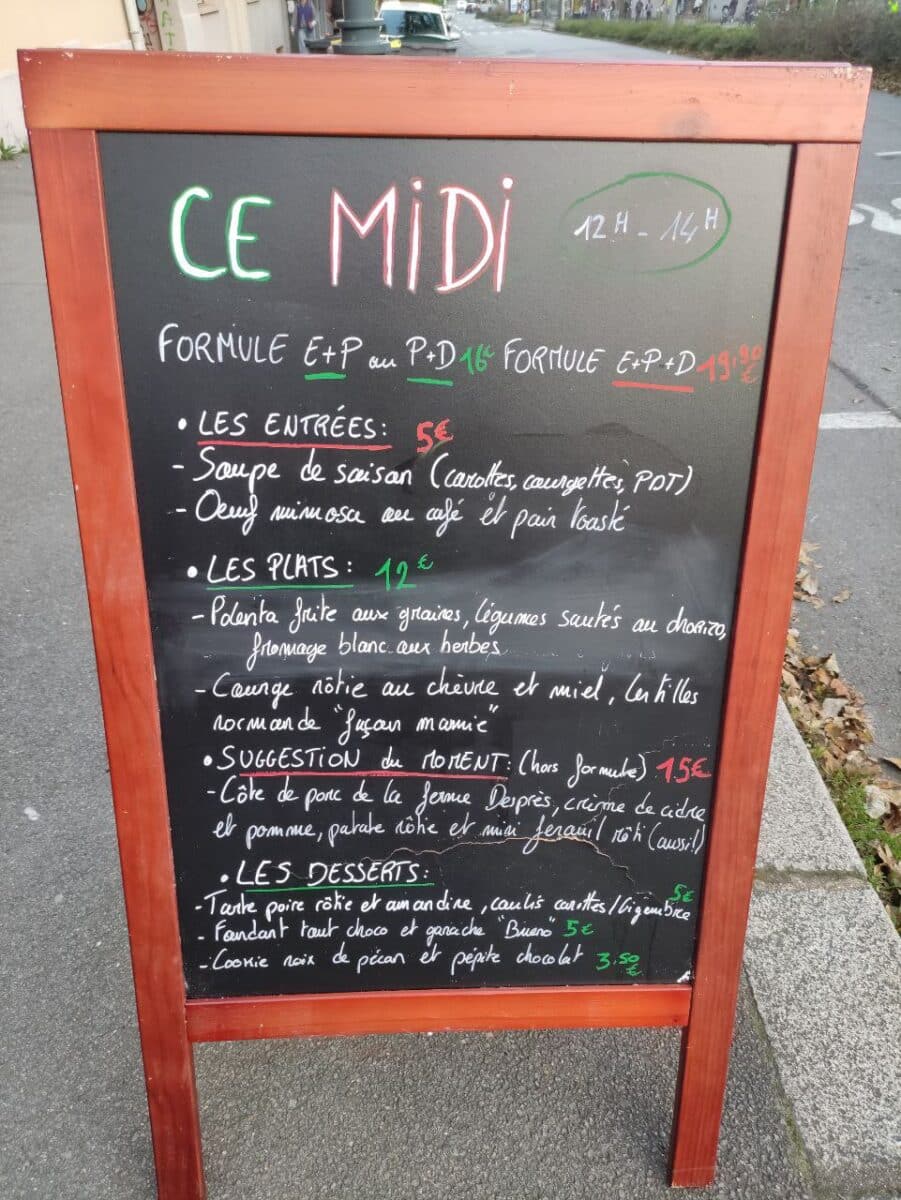 CE MiDi 12H - 14H
FORMULE E+P ou P+D 16€ FORMULE E+P+D 19,90€
• LES ENTRÉES: 5€
- Soupe de saison (carottes, courgettes, PDT)
- Oeuf mimosa au café et pain toasté
• LES PLATS: 12€
- Polenta frite aux graines, légumes sautés au chorizo,
fromage blanc aux herbes
- Courge rôtie au chèvre et miel, lentilles
normande "façon mamie"
• SUGGESTION du MOMENT: (hors formule) 15€
- Côte de porc de la ferme Desprès, crème de cidre
et pomme, patate rôtie et mini fenouil rôti (aussi!)
• LES DESSERTS:
- Tarte poire rôtie et amandine, coulis carottes/Gigembre 5€
- Fondant tout choco et ganache "Bueno" 5€
- Cookie noix de pécan et pépite chocolat 3,50€